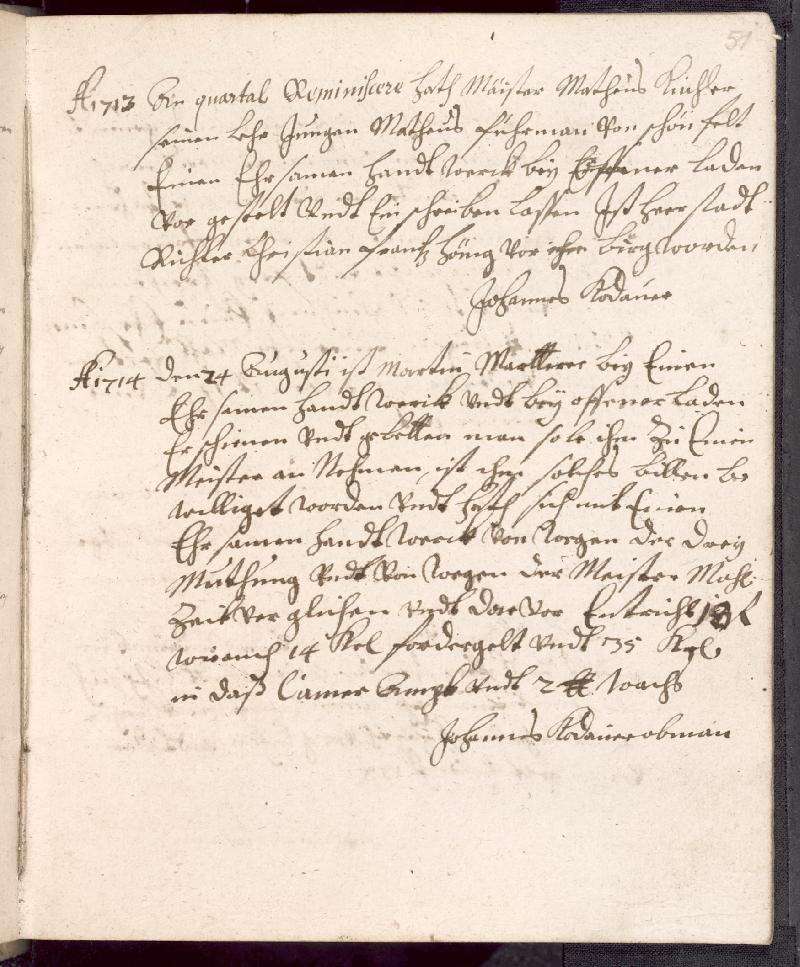 51
A 1713 Am quartal Reminiscere hath Maister Matheus Kichler
seinen lehr Jungen Matheus fuhrman von schönfelt
Einen Ehrsamen handt werck beÿ offener laden
vor gestelt vndt Ein schreiben lassen Ist heer stadt
Richter Christian frantz Hönig vor ihn birg worden
Johannes Kodauer
A 1714 den 24 Augusti ist Martin beÿ Einen
Ehr samen handt werck vndt beÿ offener laden
Er schinen vndt gebetten man sole ihm zu Einen
Meister an Nehmen, ist ihm solches bitten be
williget worden vndt hath sich mit Einen
Ehr samen handt werck von wegen der dreÿ
Muthung vndt von wegen der Meister Mahl
Zeit ver glichen vndt dar vor Entricht 18 f
wie auch 14 Kel fordergelt vndt 35 Kel
in daß Camer Ampt vndt 2 ℔ wachs
Johannes Kodauer obman